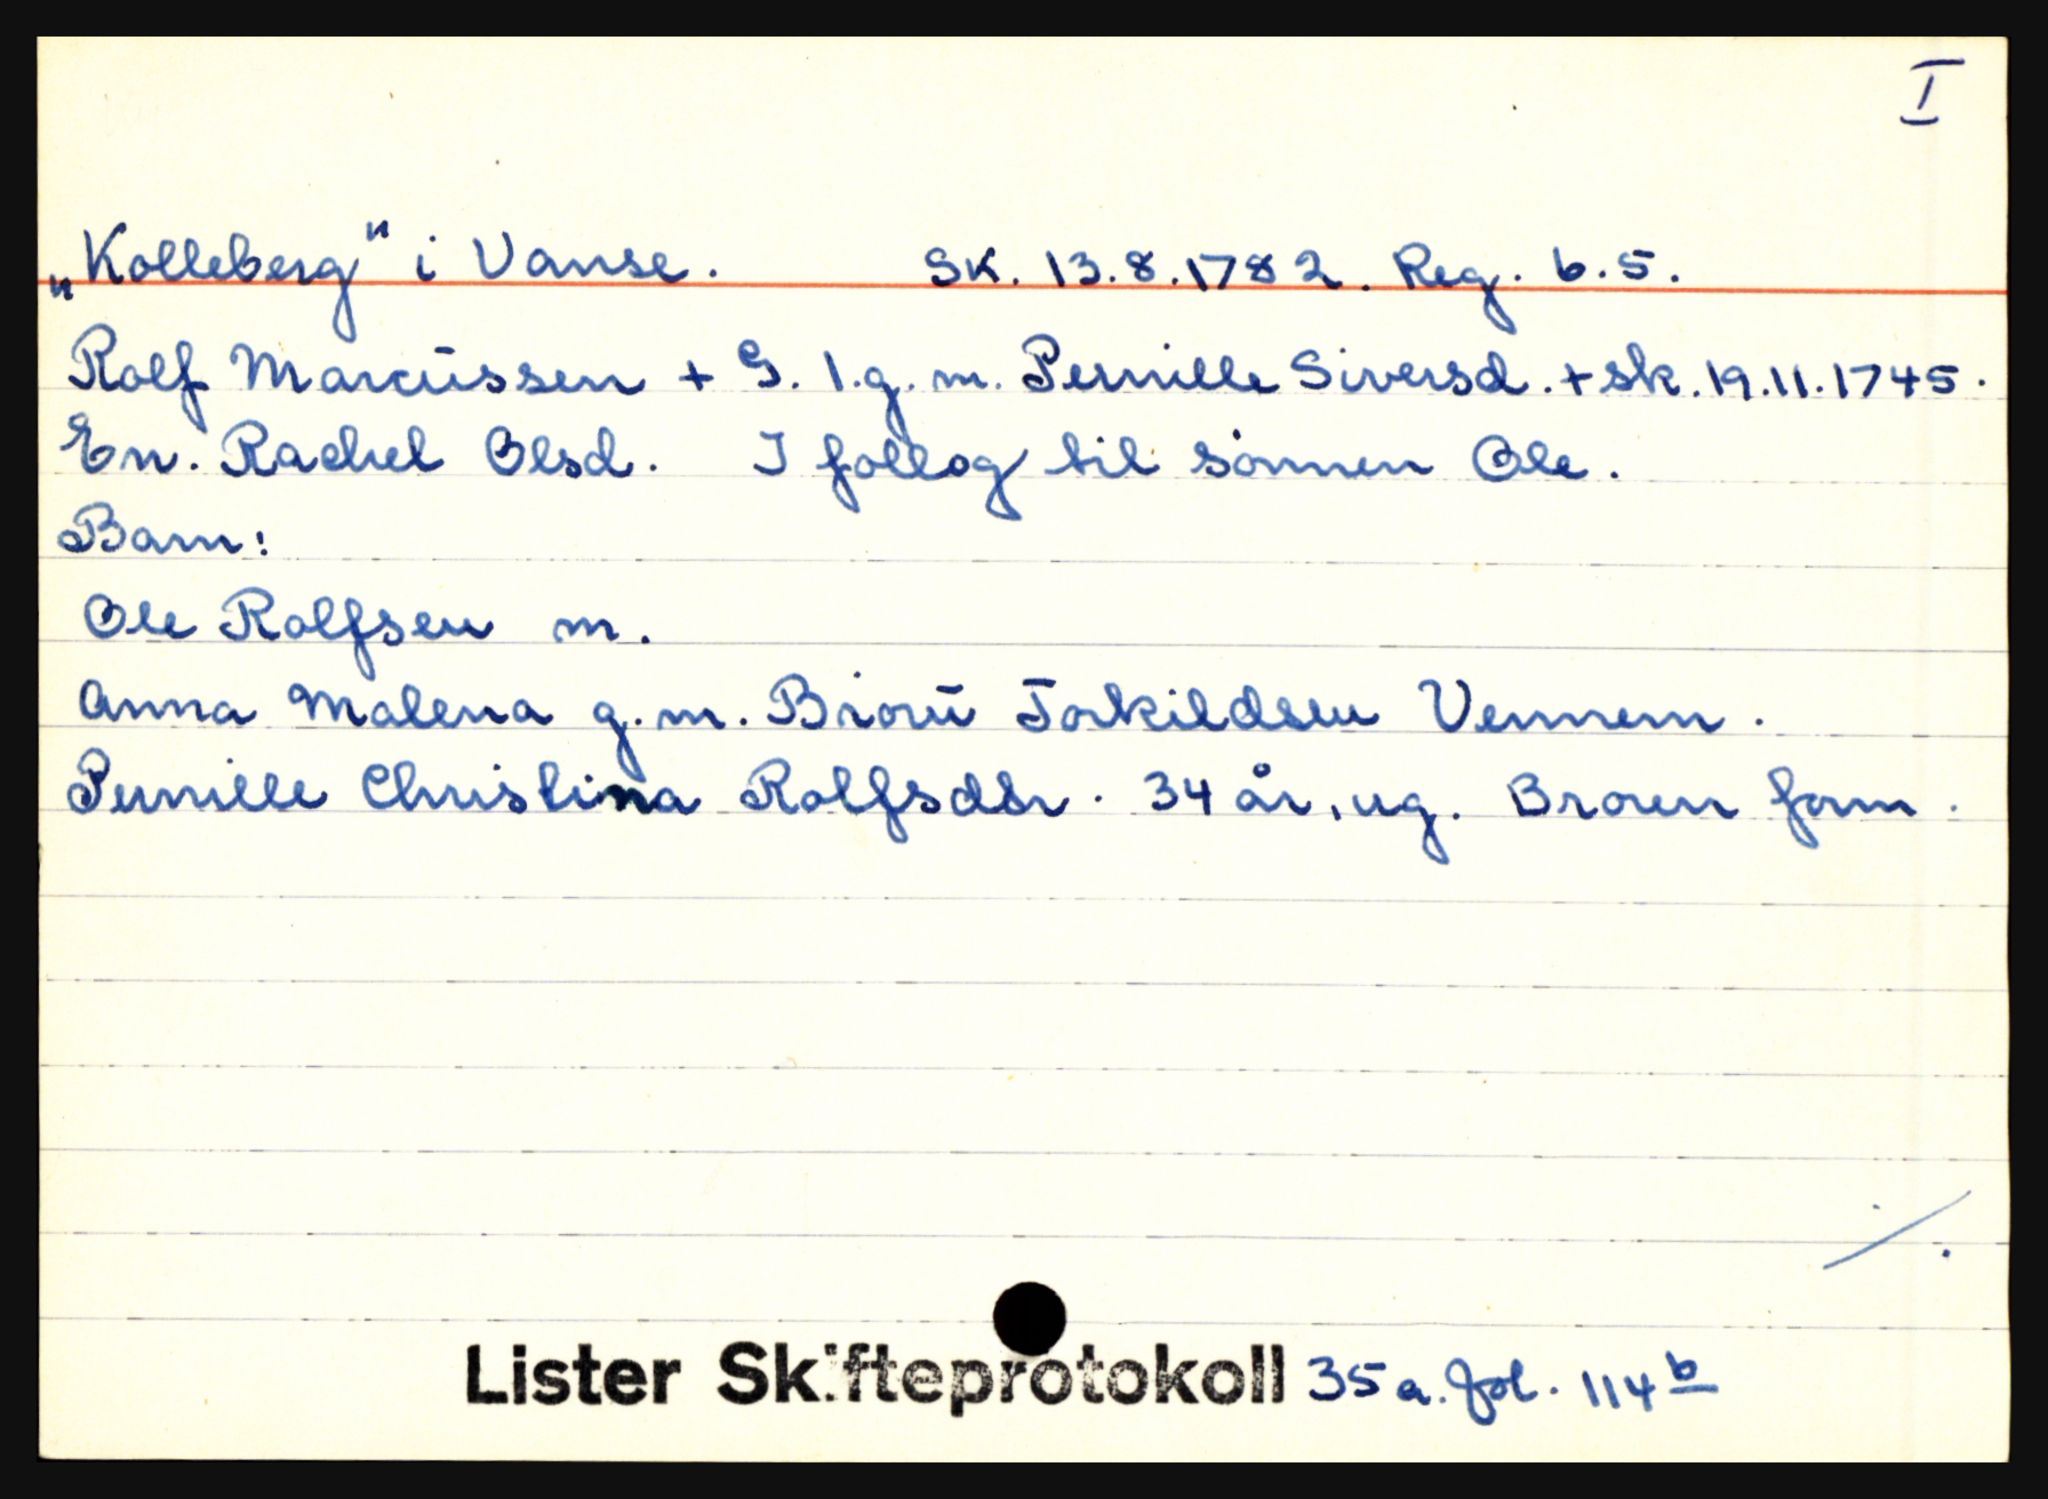 I
„Kolleberg" i Vanse. Sk. 13.8.1782. Reg. b.5.
Rolf Marcussen + G. 1.g.m. Pernille Siversd. + sk. 19.11.1745.
En. Rachel Olsd. I følløg til sønnen Ole.
Barn:
Ole Rolfsen m.
Anna Malena g.m. Brorü Torkildsen Vennem.
Pernille Christina Rolfsdtr. 34 år, ug. Broren form.
./.
Lister Skifteprotokoll 35 a. fol. 114 b